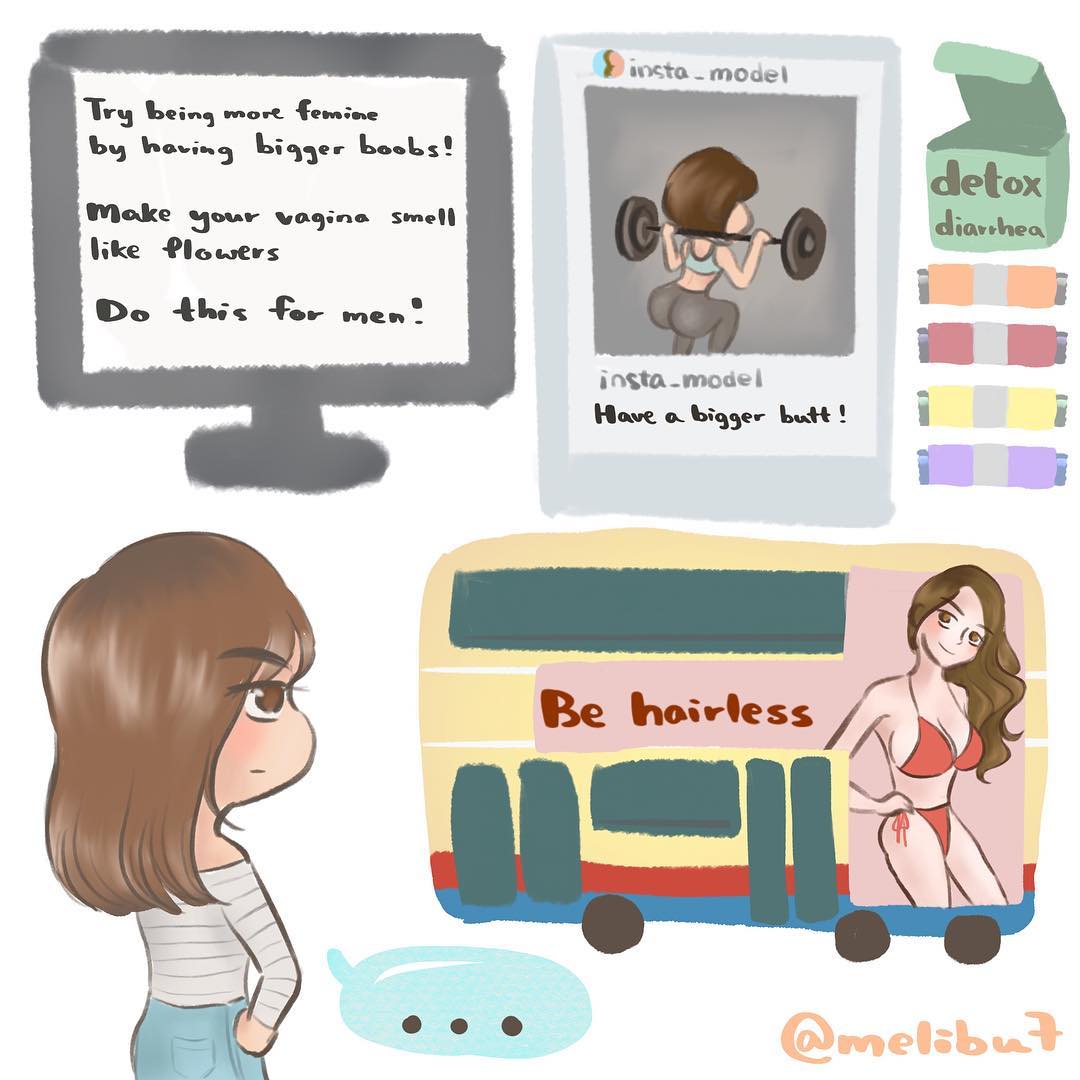 Try being more femine
by having bigger boobs!
Make your vagina smell
like flowers
Do this for men!
insta_model
insta_model
Have a bigger butt!
detox
diarrhea
Be hairless
...
@melibu7